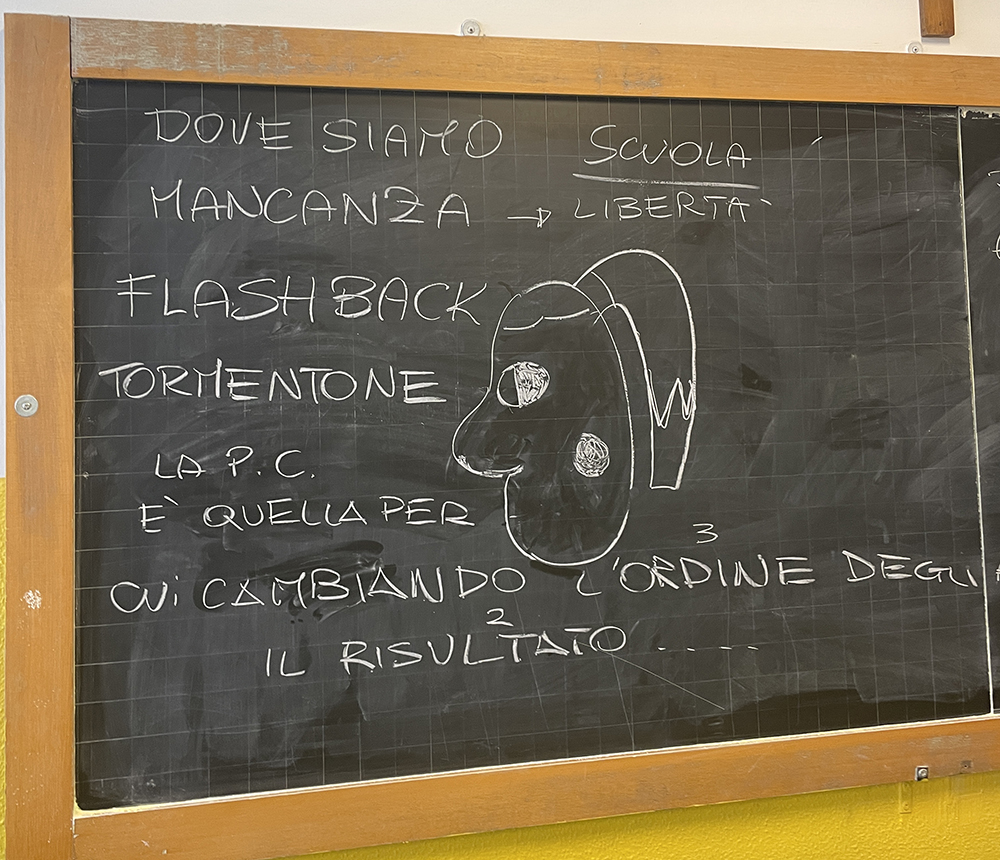 DOVE SIAMO SCUOLA
MANCANZA → LIBERTÀ
FLASHBACK
TORMENTONE
LA P.C.
È QUELLA PER
CUI CAMBIANDO L'ORDINE DEGLI
3
2
IL RISULTATO .....